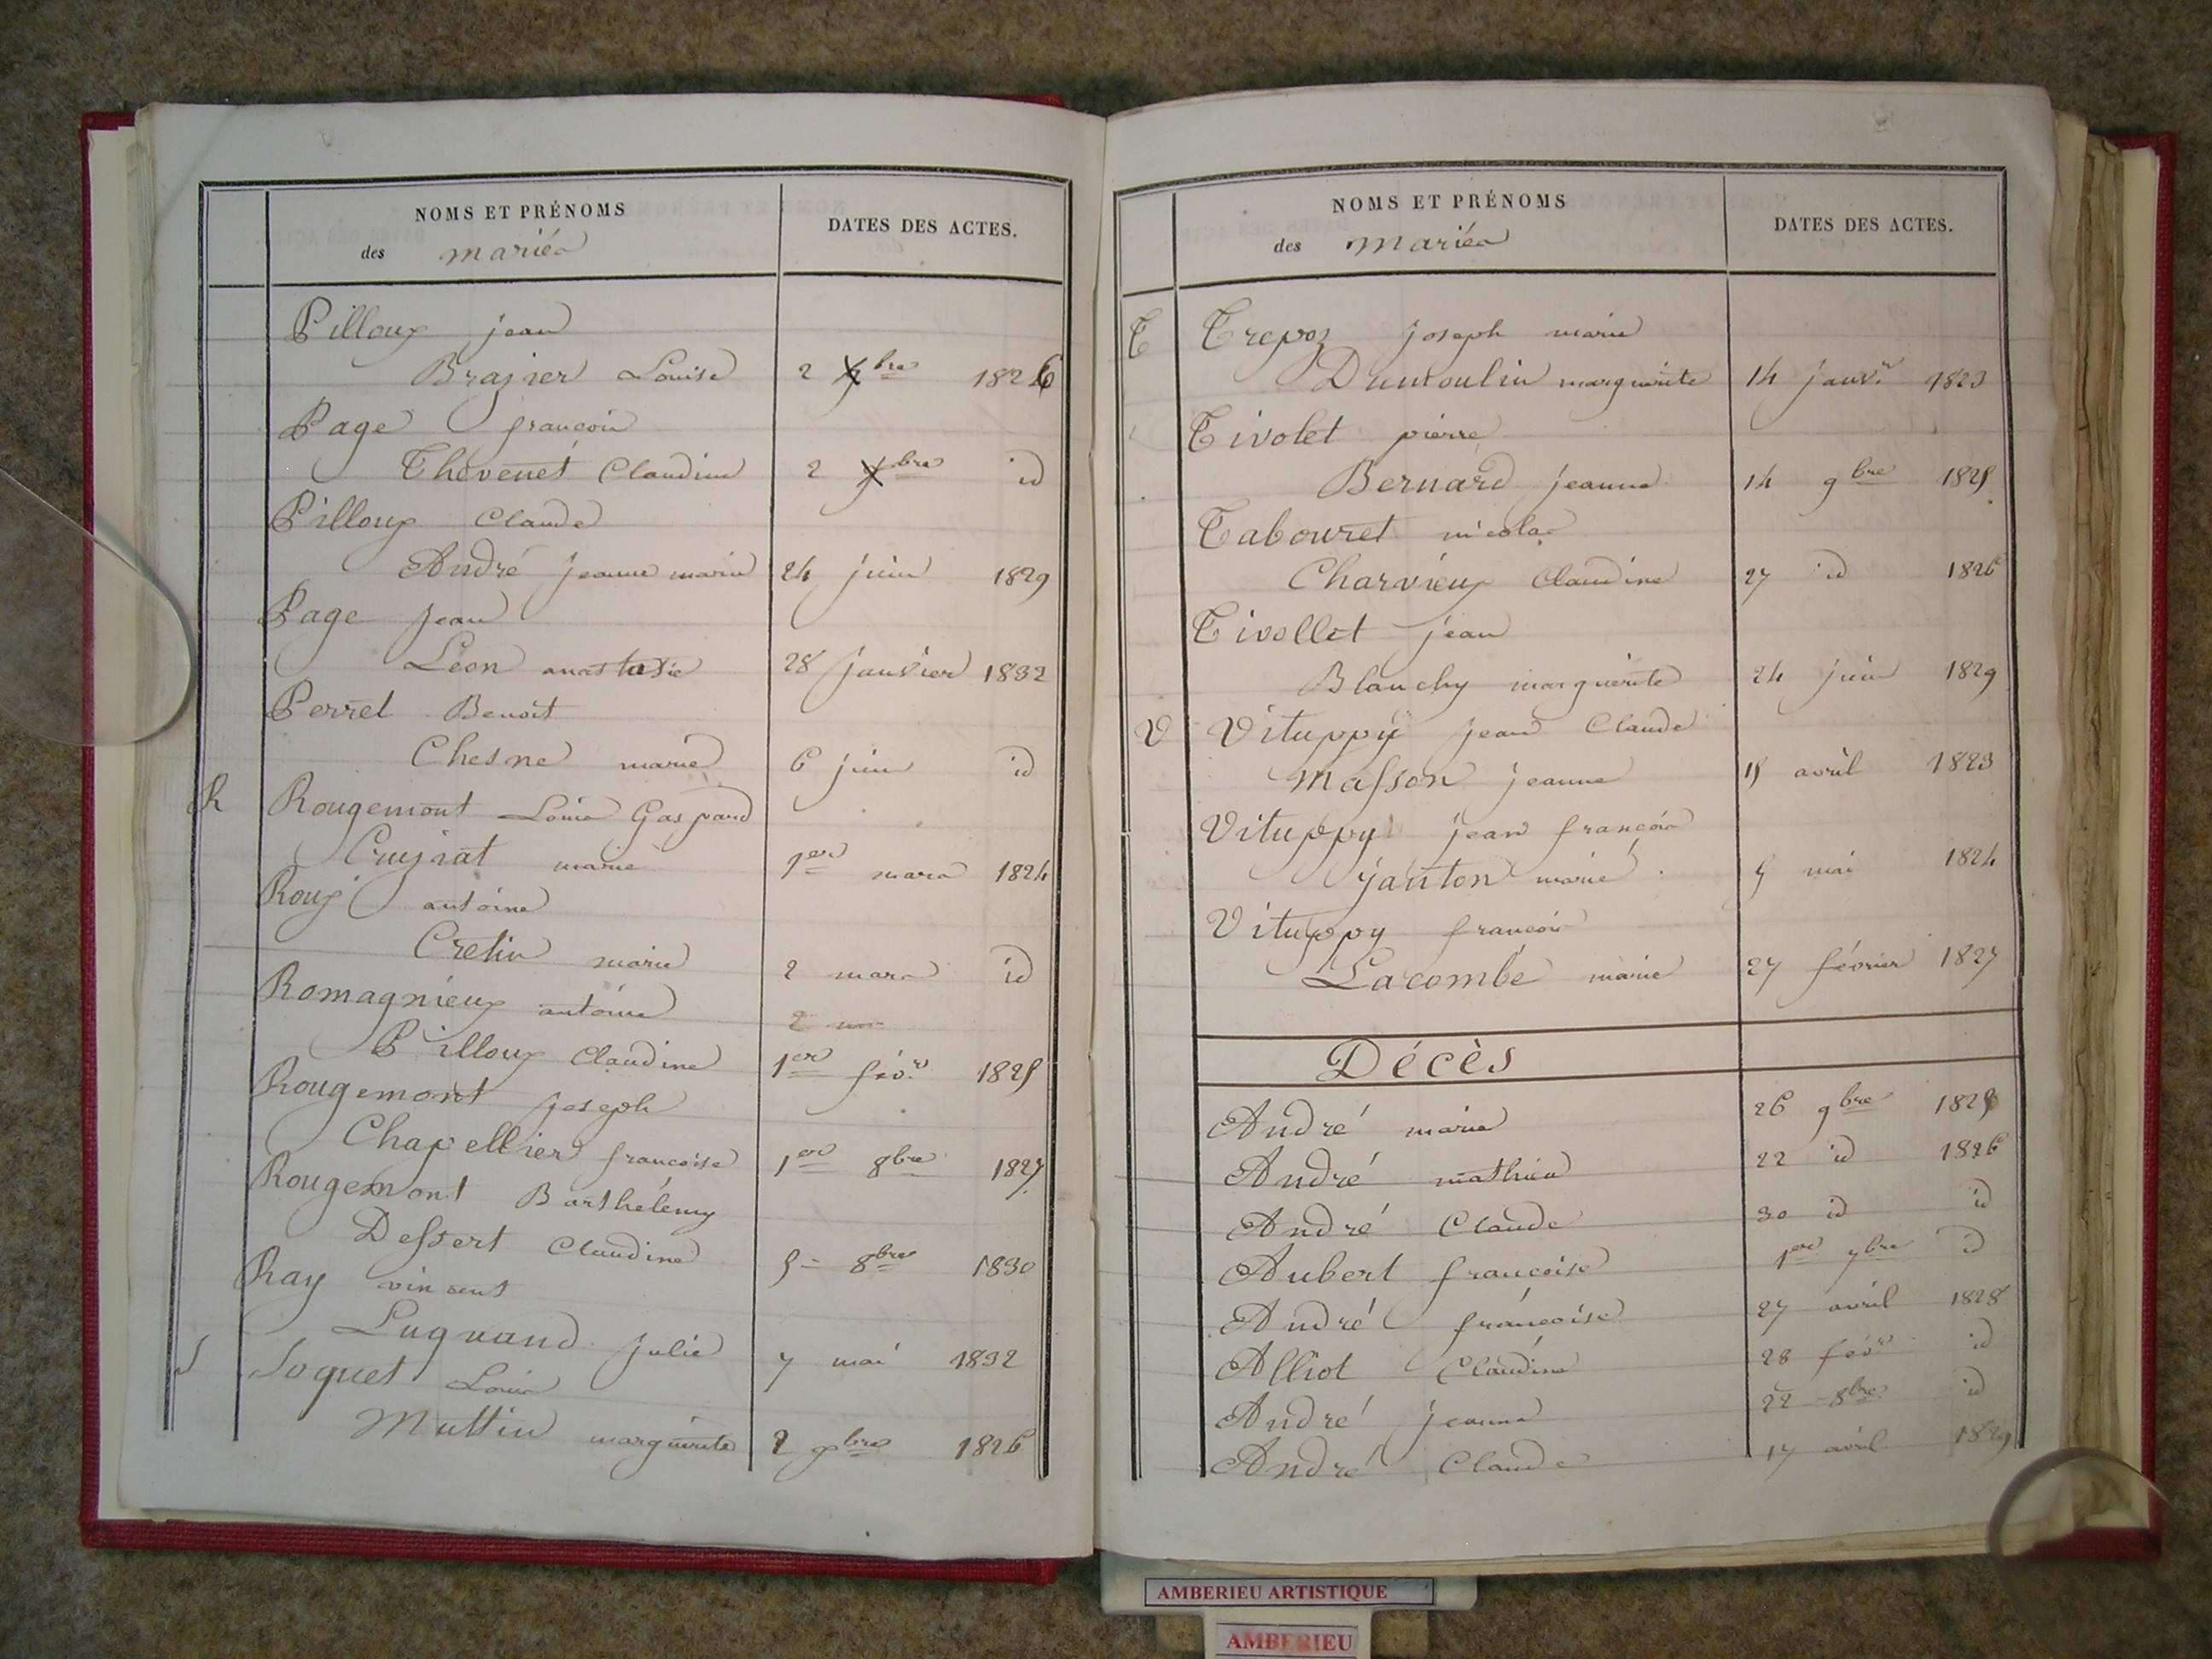 NOMS ET PRÉNOMS
des mariés
DATES DES ACTES.
Pilloux jean
Brazier Louise 2 bre 1826
Page françois
Thévenet Claudine 2 bre id
Pilloux Claude
André jeanne marie 24 juin 1829
Page jean
Léon anasthasie 28 janvier 1832
Perret Benoit
Chesne marie 6 juin id
R Rougemont Louis Gaspard
Cruzrat marie 1er mars 1824
Roux antoine
Cretin marie 2 mars id
Romagnieux antoine
Pilloux Claudine 1er févr 1825
Rougemont joseph
Chapellier françoise 1er 8bre 1827
Rougemont Barthélemy
Dessert Claudine 5 8bre 1830
Ray vincent
Luquand julie 7 mai 1832
S Soquet Louis
Muttin marguerite 2 bre 1826
NOMS ET PRÉNOMS
des mariés
DATES DES ACTES.
T Trepoz joseph marie
Dumoulin marguerite 14 janvr 1823
Tivolet pierre
Bernard jeanne 14 9bre 1825
Tabouret nicolas
Charvieux Claudine 27 id 1826
Tivollet jean
Blanchy marguerite 24 juin 1829
V Vituppy jean Claude
Masson jeanne 15 avril 1823
Vituppy jean françois
janton marie 5 mai 1824
Vituppy françois
Lacombe marie 27 février 1827
Décès
André marie 26 9bre 1825
André mathieu 22 id 1826
André Claude 30 id id
Aubert françoise 1er 7bre id
André françoise 27 avril 1828
Alliot Claudine 28 févr id
André jeanne 22 8bre id
André Claude 17 avril 1829
AMBERIEU ARTISTIQUE
AMBERIEU